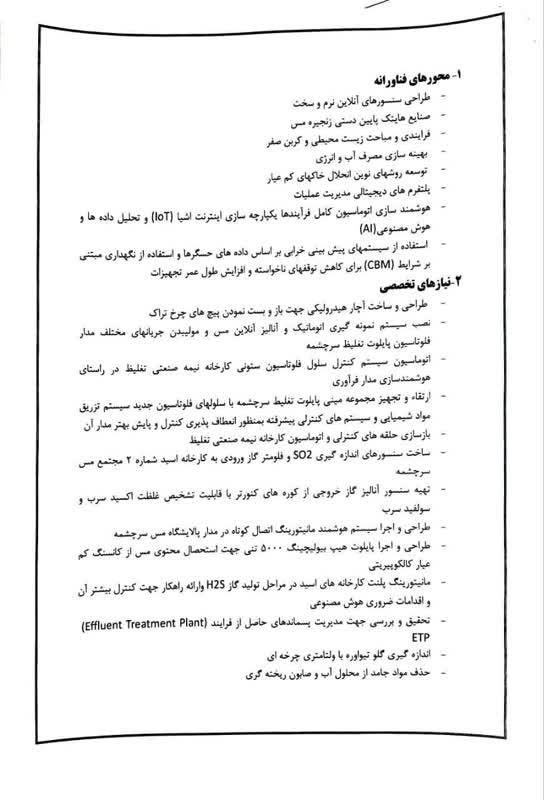 ۱- محورهای فناورانه
- طراحی سنسورهای آنلاین نرم و سخت
- صنایع هایتک پایین دستی زنجیره مس
- فرایندی و مباحث زیست محیطی و کربن صفر
- بهینه سازی مصرف آب و انرژی
- توسعه روشهای نوین انحلال خاکهای کم عیار
- پلتفرم های دیجیتالی مدیریت عملیات
- هوشمند سازی اتوماسیون کامل فرآیندها یکپارچه سازی اینترنت اشیا (IoT) و تحلیل داده ها و
هوش مصنوعی(AI)
- استفاده از سیستمهای پیش بینی خرابی بر اساس داده های حسگرها و استفاده از نگهداری مبتنی
بر شرایط (CBM) برای کاهش توقفهای ناخواسته و افزایش طول عمر تجهیزات
۲-نیازهای تخصصی
- طراحی و ساخت آچار هیدرولیکی جهت باز و بست نمودن پیچ های چرخ تراک
- نصب سیستم نمونه گیری اتوماتیک و آنالیز آنلاین مس و مولیبدن جریانهای مختلف مدار
فلوتاسیون پایلوت تغلیظ سرچشمه
- اتوماسیون سیستم کنترل سلول فلوتاسیون ستونی کارخانه نیمه صنعتی تغلیظ در راستای
هوشمندسازی مدار فرآوری
- ارتقاء و تجهیز مجموعه مینی پایلوت تغلیظ سرچشمه با سلولهای فلوتاسیون جدید سیستم تزریق
مواد شیمیایی و سیستم های کنترلی پیشرفته بمنظور انعطاف پذیری کنترل و پایش بهتر مدار آن
- بازسازی حلقه های کنترلی و اتوماسیون کارخانه نیمه صنعتی تغلیظ
- ساخت سنسورهای اندازه گیری SO2 و فلومتر گاز ورودی به کارخانه اسید شماره ۲ مجتمع مس
سرچشمه
- تهیه سنسور آنالیز گاز خروجی از کوره های کنورتر با قابلیت تشخیص غلظت اکسید سرب و
سولفید سرب
- طراحی و اجرا سیستم هوشمند مانیتورینگ اتصال کوتاه در مدار پالایشگاه مس سرچشمه
- طراحی و اجرا پایلوت هیپ بیولیچینگ ۵۰۰۰ تنی جهت استحصال محتوی مس از کانسنگ کم
عیار کالکوپیریتی
- مانیتورینگ پلنت کارخانه های اسید در مراحل تولید گاز H2S وارائه راهکار جهت کنترل بیشتر آن
و اقدامات ضروری هوش مصنوعی
- تحقیق و بررسی جهت مدیریت پسماندهای حاصل از فرایند (Effluent Treatment Plant)
ETP
- اندازه گیری گلو تیواوره با ولتامتری چرخه ای
- حذف مواد جامد از محلول آب و صابون ریخته گری